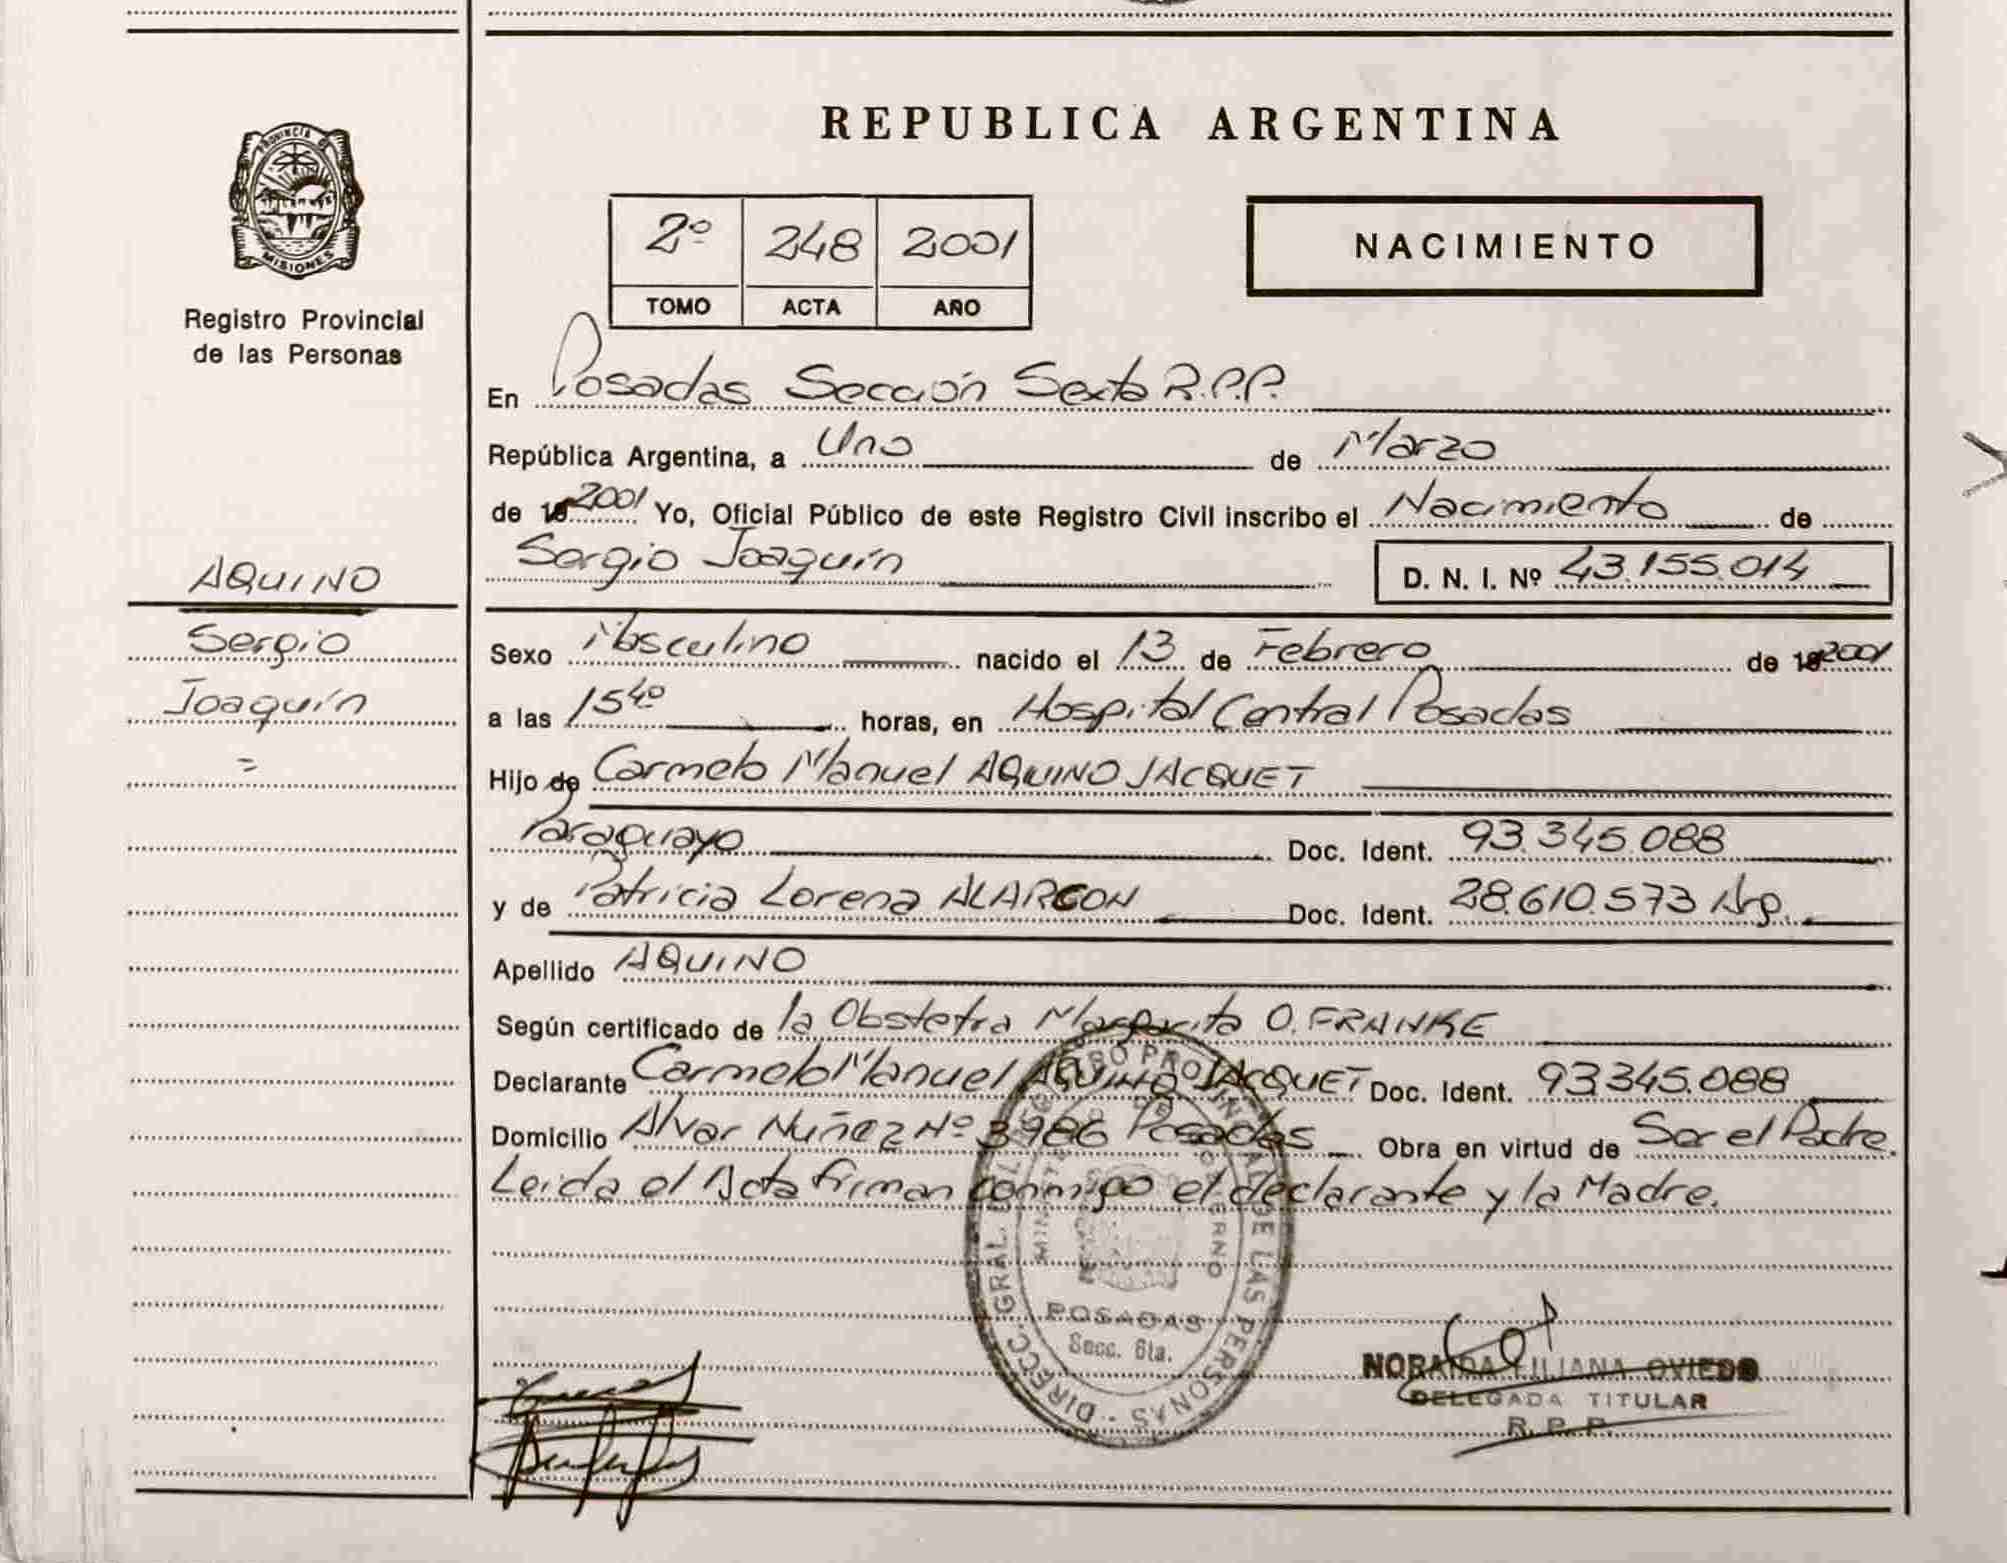 REPUBLICA ARGENTINA
PROVINCIA DE
MISIONES
Registro Provincial
de las Personas
2º 248 2001
TOMO ACTA AÑO
NACIMIENTO
En Posadas Sección Sexta R.P.P.
República Argentina, a Uno de Marzo
de 19 2001 Yo, Oficial Público de este Registro Civil inscribo el Nacimiento de
Sergio Joaquín D. N. I. Nº 43.155.014
AQUINO
Sergio
Joaquín
=
Sexo Masculino nacido el 13 de Febrero de 19 2001
a las 15⁴⁰ horas, en Hospital Central Posadas
Hijo de Carmelo Manuel AQUINO JACQUET
Paraguayo Doc. Ident. 93.345.088
y de Patricia Lorena ALARCON Doc. Ident. 28.610.573 Arg.
Apellido AQUINO
Según certificado de la Obstetra Margarita O. FRANKE
Declarante Carmelo Manuel AQUINO JACQUET Doc. Ident. 93.345.088
Domicilio Alvar Nuñez Nº 3986 Posadas Obra en virtud de Ser el Padre.
Leida el Acta firman conmigo el declarante y la Madre.
DIRECC. GRAL. DEL REGISTRO PROVINCIAL DE LAS PERSONAS
MINISTERIO DE GOBIERNO
POSADAS
Secc. 6ta.
NORAIDA LILIANA OVIEDO
DELEGADA TITULAR
R. P. P.